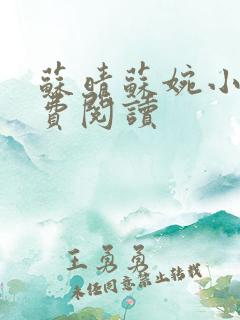 蘇晴蘇婉小
費閱讀
王勇勇
未经同意禁止转载